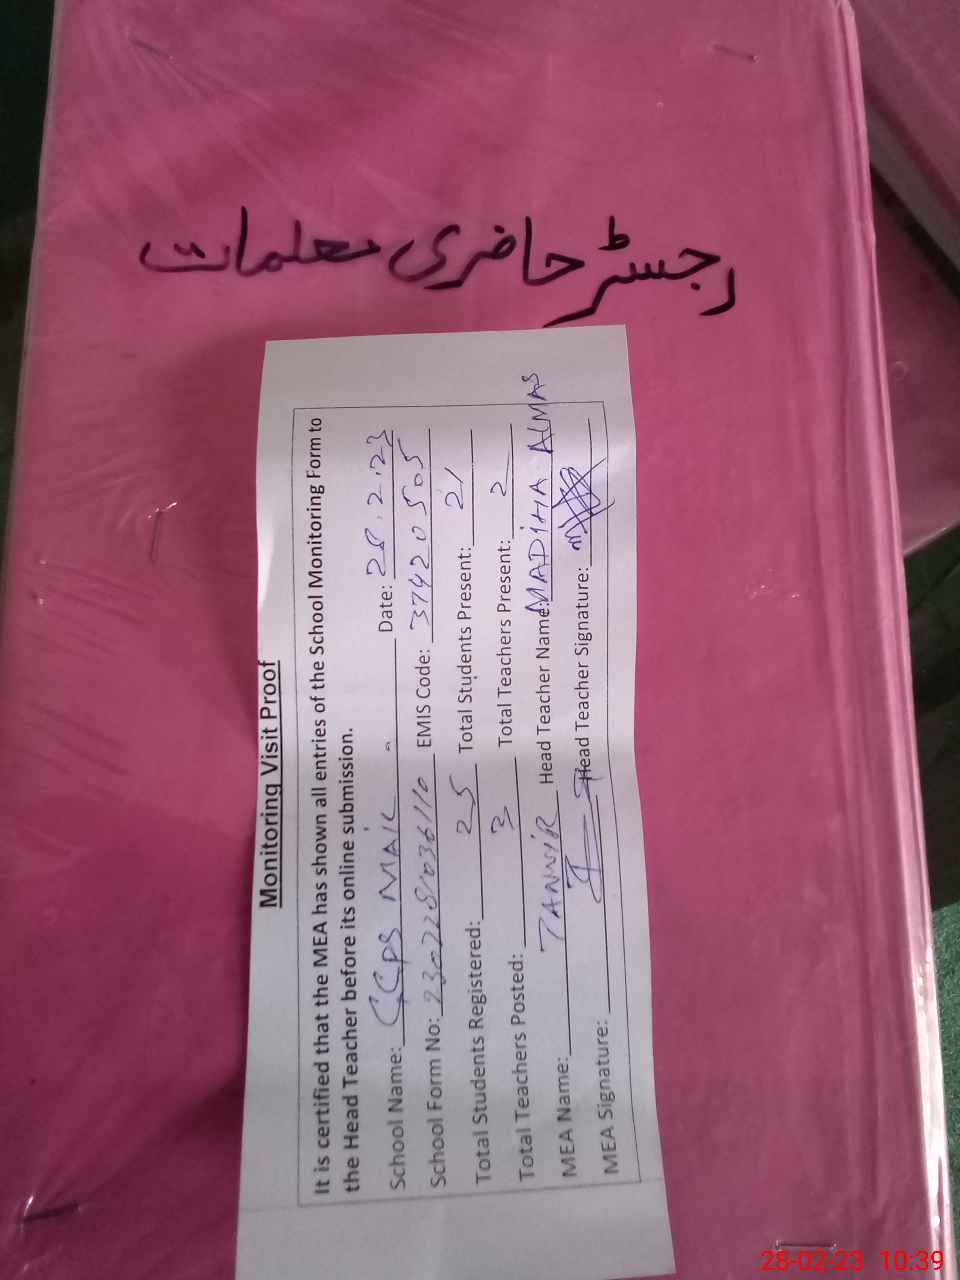 رجسٹر حاضری معلمات
Monitoring Visit Proof
It is certified that the MEA has shown all entries of the School Monitoring Form to
the Head Teacher before its online submission.
School Name: GGPS MAIL Date: 28.2.23
School Form No: 2302281036110 EMIS Code: 37420505
Total Students Registered: 25 Total Students Present: 21
Total Teachers Posted: 3 Total Teachers Present: 2
MEA Name: TANVIR Head Teacher Name: MADIHA ALMAS
MEA Signature: Head Teacher Signature:
28-02-23 10:39